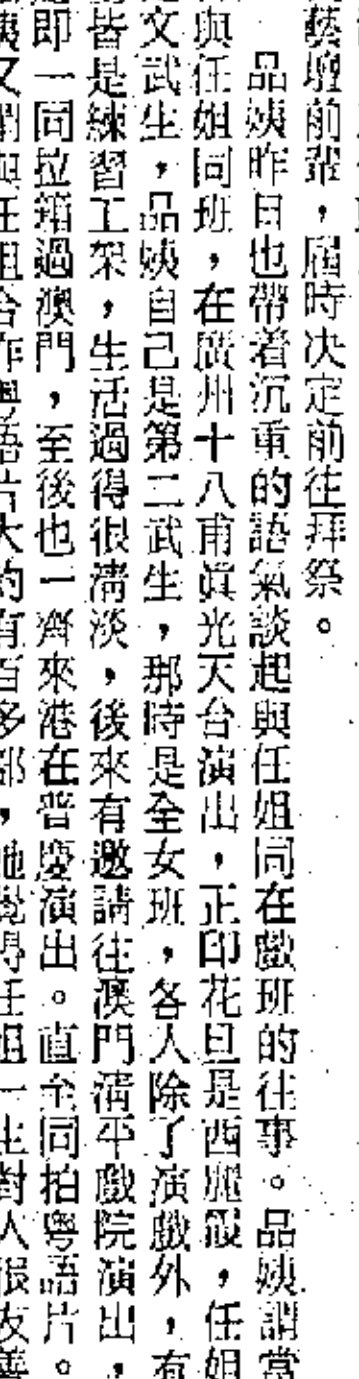 藝壇前輩，屆時決定前往拜祭。
品姨昨日也帶着沉重的語氣談起與任姐同在戲班的往事。品姨謂當
與任姐同班，在廣州十八甫眞光天台演出，正印花旦是西麗霞，任姐
文武生，品姨自己是第二武生，那時是全女班，各人除了演戲外，有
皆是練習工架，生活過得很淸淡，後來有邀請往澳門淸平戲院演出，
即一同拉箱過澳門，至後也一齊來港在普慶演出。直至同拍粵語片。
姨又謂與任姐合作粵語片大約有百多部，她覺得任姐一生對人很友善